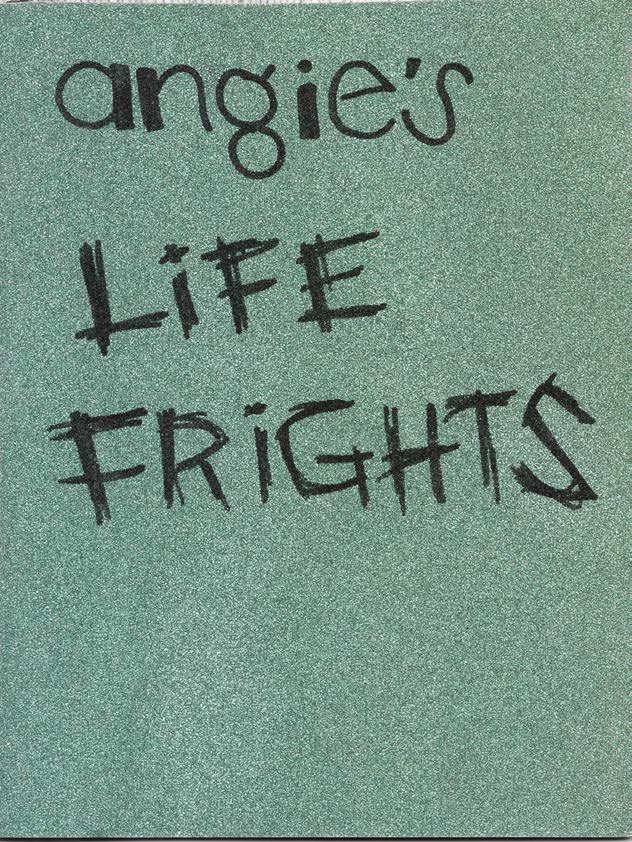 angie's
LiFE
FRiGHTS